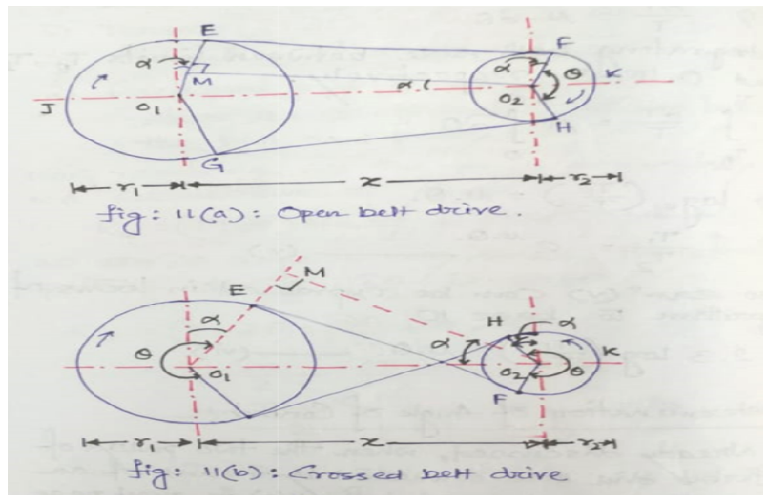 E
F
α
M
α
θ
K
α
J
O1
O2
H
G
r1
x
r2
fig: 11(a): Open belt drive.
M
E
H
α
α
α
K
θ
O1
O2
θ
F
r1
x
r2
fig: 11(b): Crossed belt drive